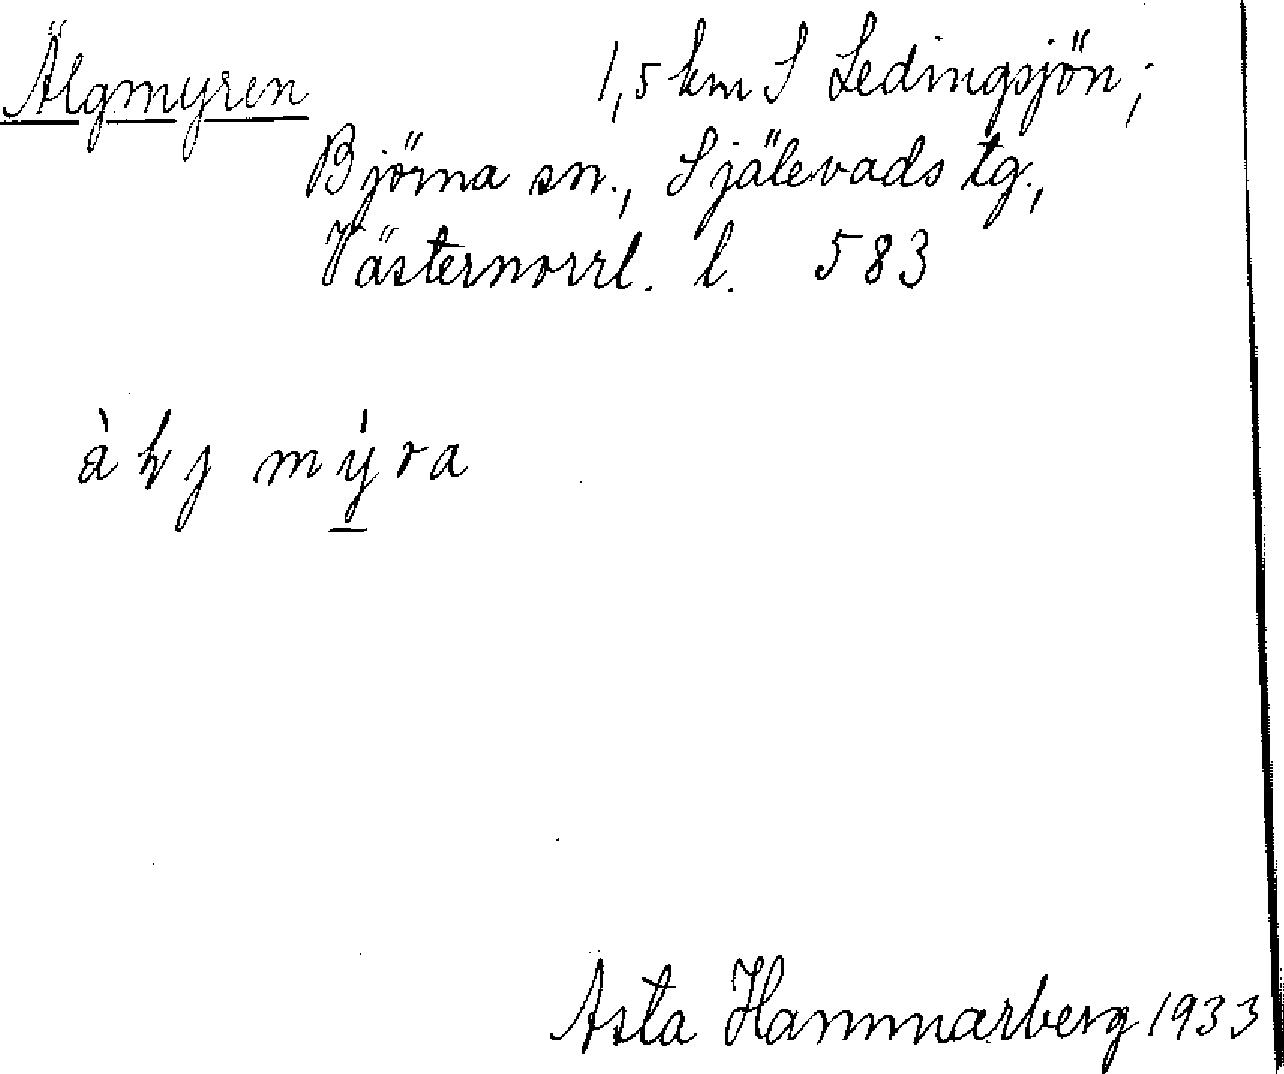 Älgmyren 1,5 km S Ledingsjön;
Björna sn., Själevads tg.,
Västernorrl. l. 583
mýra
Asta Hammarberg 1933